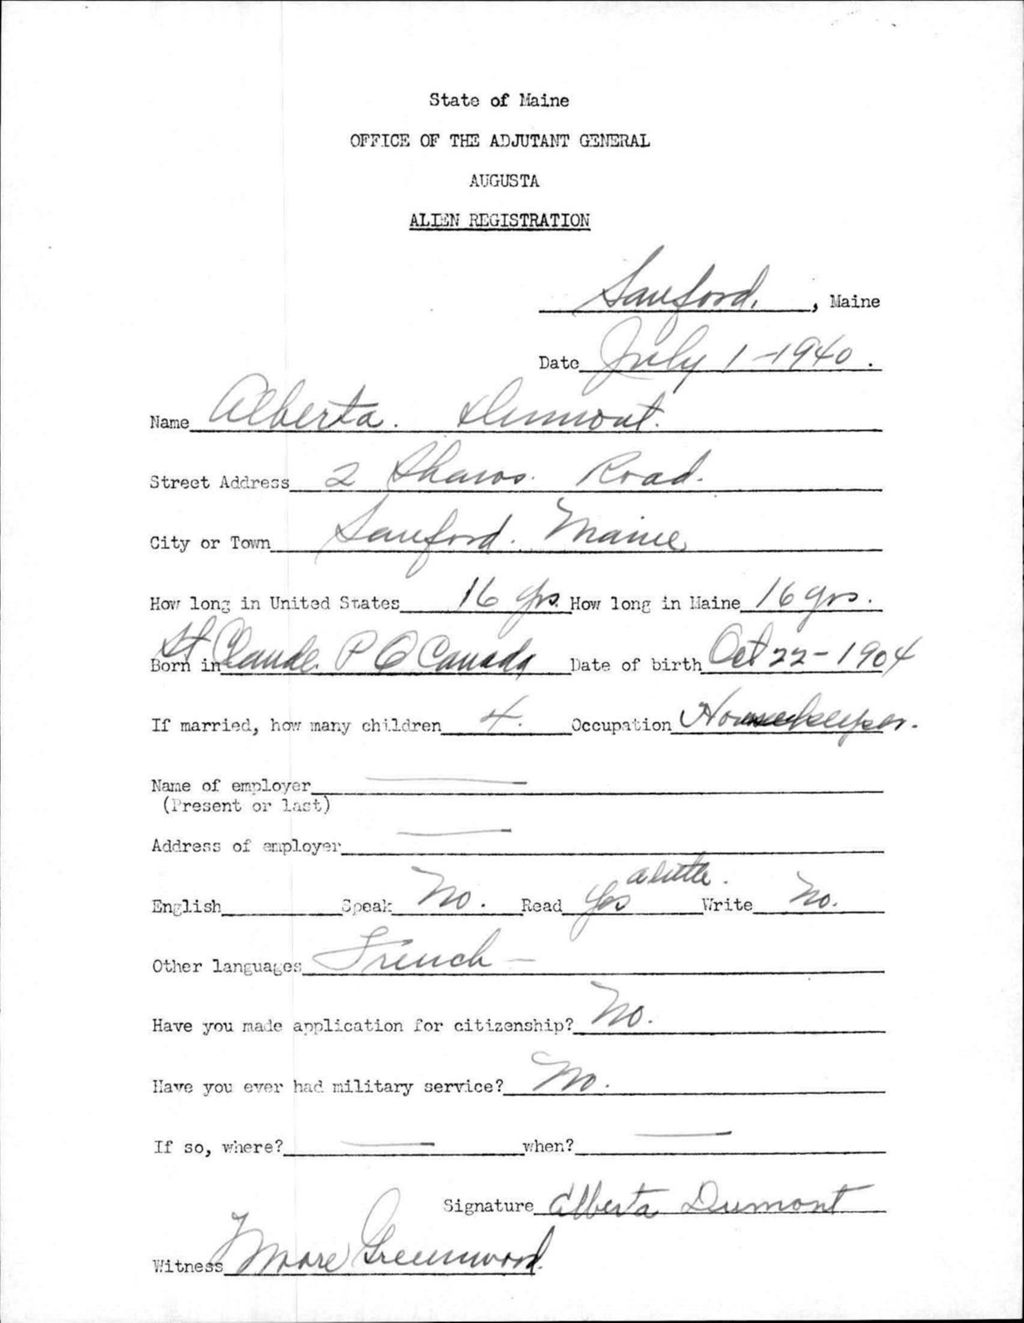 State of Maine
OFFICE OF THE ADJUTANT GENERAL
AUGUSTA
ALIEN REGISTRATION
Sanford, , Maine
Date July 1-1940.
Name Alberta. Dumont.
Street Address 2 Shaws. Road.
City or Town Sanford. Maine
How long in United States 16 yrs. How long in Maine 16 yrs.
Born in St Claude P Q Canada Date of birth Oct 22-1904
If married, how many children 4. Occupation Housekeeper.
Name of employer
(Present or last)
Address of employer
English Speak No. Read Yes a little. Write No.
Other languages French -
Have you made application for citizenship? No.
Have you ever had military service? No.
If so, where? when?
Signature Alberta Dumont
Witness Greenwood